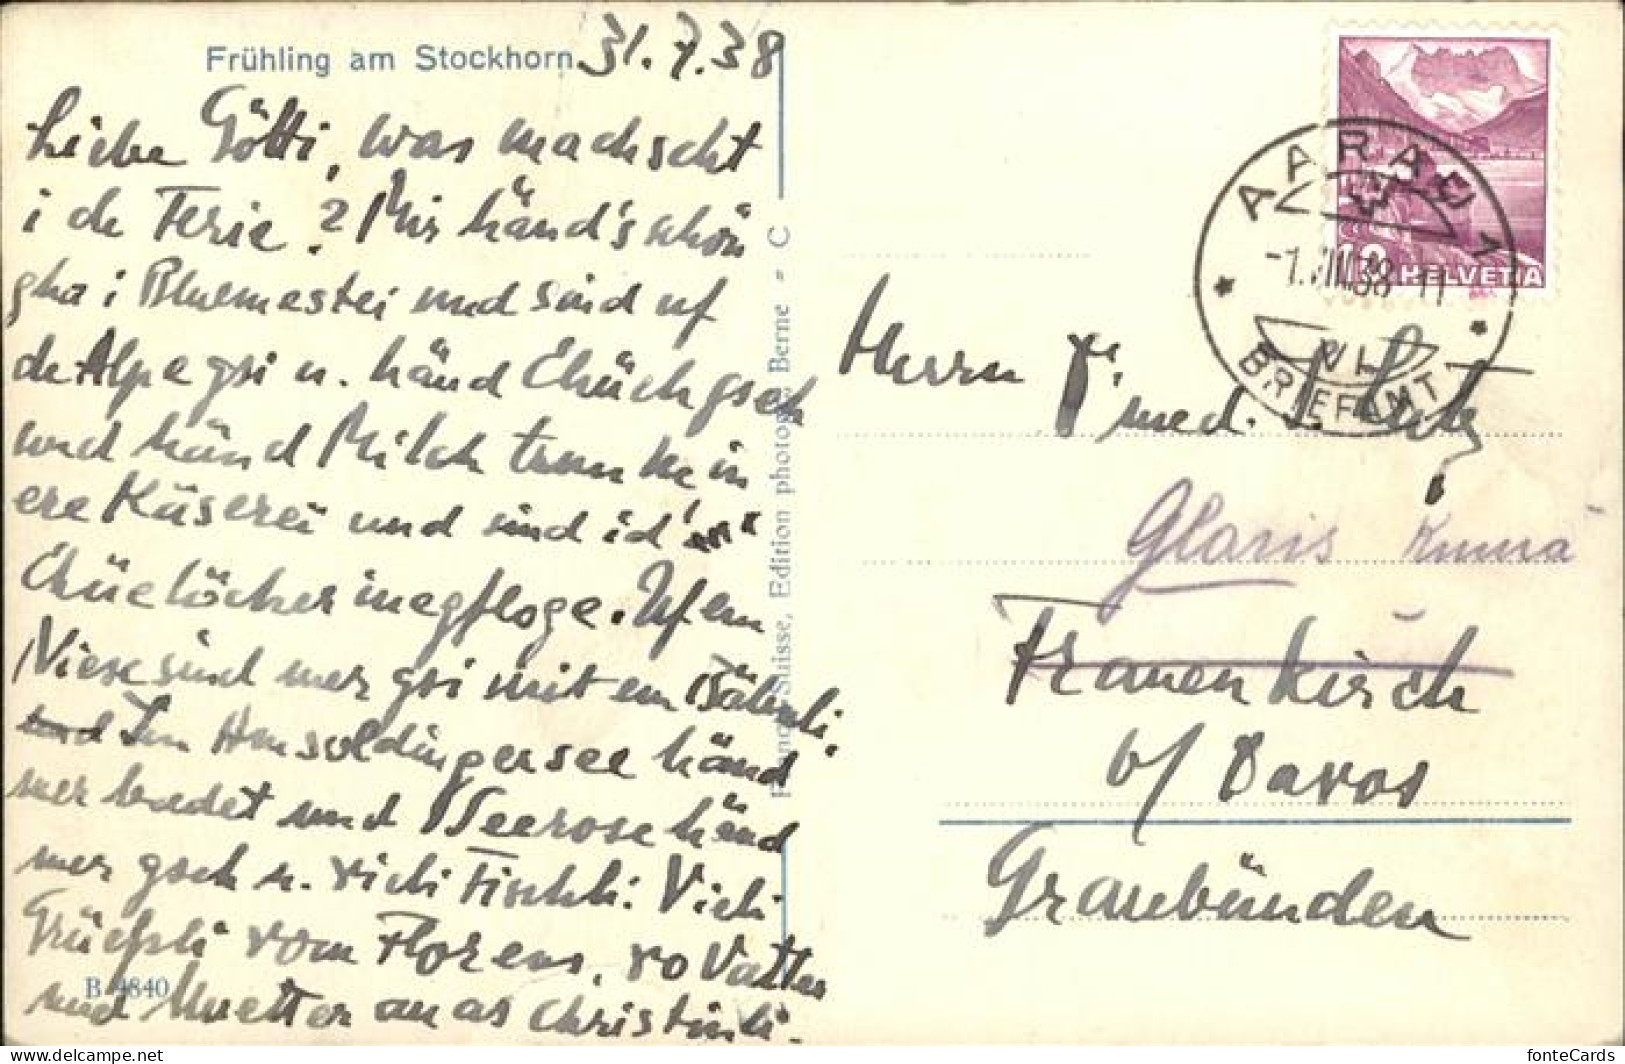 Frühling am Stockhorn 31.7.38
Liebe Götti, was machscht
i de Ferie? Mir händ's schön
gha i Bluemestei und sind uf
de Alpe gsi u. händ Chüeh gseh
und händ Milch trunke in
ere Käserei und sind id'
Chüelöcher inegfloge. Uf em
Niese sind mer gsi mit em Bähnli,
und Im Amsoldingersee händ
mer badet und Seerose händ
mer gseh u. vieli Fischli: Vieli
Grüessli vom Florens, vo Vatter
und Muetter an as Christinli.
B 4840
Franco-Suisse, Edition photogr., Berne - C
AARAU 1
-1.VIII.38 11
VI
BRIEFAMT
10 HELVETIA
Herrn Dr. med.
Glaris
Frauenkirch
b/ Davos
Graubünden
fonteCards